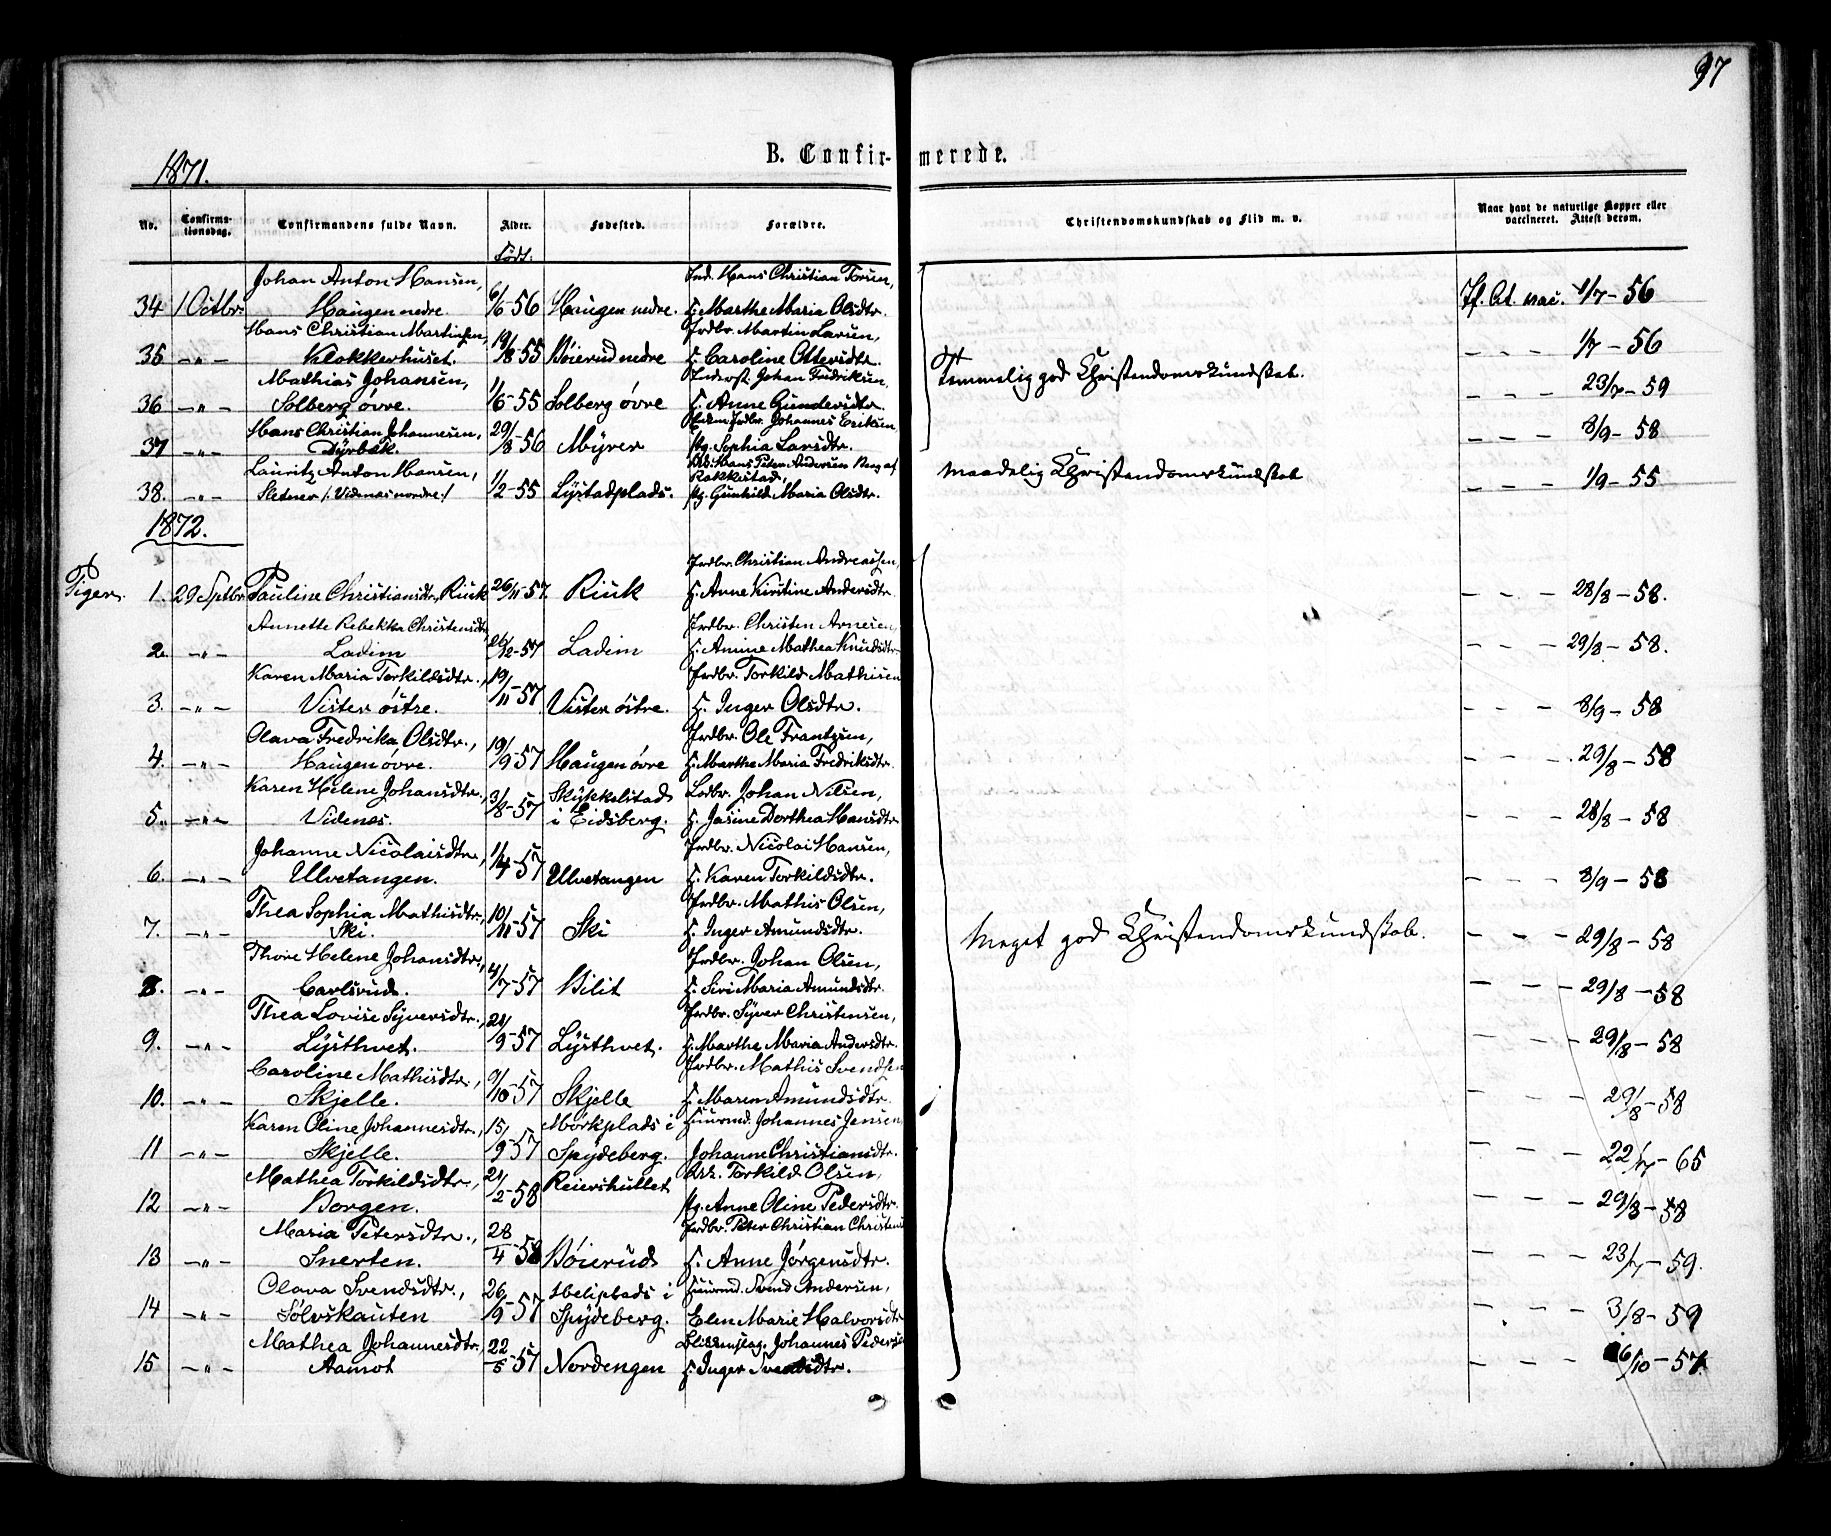 97
1871.
B. Confir- merede.
No. Confirma-tionsdag. Confirmandens fulde Navn. Alder. Fødested. Forældre. Christendomskundskab og Flid m. v. Naar havt de naturlige Kopper eller vaccineret. Attest derom.
Født:
Johan Anton Hansen, Ind. Hans Christian Torsen,
34 1 Octbr Haugen nedre. 6/6-56 Haugen nedre. H. Marthe Maria Olsdtr. If. At. vac. 1/7-56
Hans Christian Martinsen, Grdbr. Martin Larsen,
35 -"- Klokkerhuset. 19/8-55 Böierud nedre H. Caroline Ottersdtr. - - - 1/7-56
Temmelig god Christendomskundskab.
Mathias Johansen, Johan Fredriksen,
36 -"- Solberg övre. 1/6-55 Solberg övre H. Anne Gundersdtr. - - - 23/7-59
Hans Christian Johannesen, Johannes Eriksen,
37 -"- Dyrbak. 29/8-56 Myrer pg. Sophia Larsdtr. - - - 8/9-58
Lauritz Anton Hansen, Hans Peter Andersen Berg af Rakkestad,
38. -"- Sletner /: Videnæs nordre :/ 1/2-55 Lystadplads. pg. Gunhild Maria Olsdtr. Maadelig Christendomskundskab - - - 1/9-55
1872.
Grdbr. Christian Andreassen,
Piger. 1. 29 Sptbr Pauline Christiansdtr, Riuk 26/11-57. Riuk H. Anne Kirstine Andersdtr. - - - 28/8-58.
Annette Rebekka Christensdtr, Grdbr. Christen Arnesen,
2. -"- Ladim 26/12-57 Ladim H. Amine Mathea Knudsdtr - - - 29/8-58.
Karen Maria Torkildsdtr., Grdbr. Torkild Mathisen
3. -"- Vister östre. 19/11-57 Vister östre. H. Inger Olsdtr. - - - 8/9-58
Olava Fredrika Olsdtr., Grdbr. Ole Frantzen,
4. -"- Haugen övre. 19/9-57 Haugen övre H. Marthe Maria Fredriksdtr. - - - 29/8-58
Karen Helene Johansdtr., Skykkelstad Johan Nilsen,
5. -"- Videnæs. 3/8-57 i Eidsberg. H. Jasine Dorthea Hansdtr - - - 28/8-58
Johanne Nicolaisdtr., Grdbr. Nicolai Hansen,
6. -"- Ulvetangen. 1/4-57 Ulvetangen H. Karen Torkildsdtr. - - - 8/9-58
Thea Sophia Mathisdtr., Grdbr. Mathis Olsen,
7. -"- Ski. 10/11-57 Ski H. Inger Amundsdtr. Meget god Christendomskundskab. - - - 29/8-58
Thore Helene Johansdtr., Grdbr. Johan Olsen,
8. -"- Carlsrud. 4/7-57 Bilit H. Siri Maria Amundsdtr. - - - 29/8-58
Thea Lovise Syversdtr., Grdbr. Syver Christensen,
9. -"- Lysthvet. 24/9-57 Lysthvet. H. Marthe Maria Andersdtr. - - - 29/8-58
Caroline Mathisdtr., Grdbr. Mathis Svendsen
10. -"- Skjelle. 9/10-57 Skjelle H. Maren Amundsdtr. - - - 29/8-58
Karen Oline Johannesdtr., Mörkplads i Huusmd. Johannes Jensen,
11 -"- Skjelle. 15/9-57 Spydeberg. Johanne Christiansdtr. - - - 22/7-65
Mathea Torkildsdtr., Torkild Olsen,
12 -"- Borgen. 24/2-58 Reiershullet pg. Anne Oline Pedersdtr. - - - 29/8-58
Maria Petersdtr., Grdbr. Peter Christian Christens
13 -"- Snerten. 28/4-58 Böierud H. Anne Jörgensdtr. - - - 23/7-59.
Olava Svendsdtr., Heliplads i Huusmd. Svend Andersen,
14 -"- Sölvskauten 26/9-57 Spydeberg. Elen Marie Halvorsdtr - - - 3/8-59
Mathea Johannesdtr., Johannes Peders
15 -"- Aamot 22/5-57 Nordengen H. Inger Svendsdtr. - - - 6/10-57.